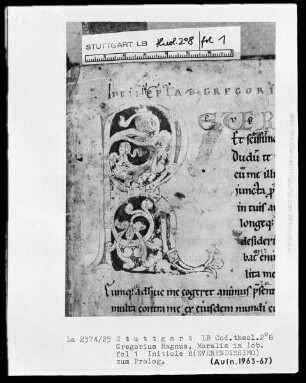 STUTTGART LB theol.2°8 fol 1
Incipit EPLA B GREGORI
EVER
Et sc̄issim
Dudū te
cum me ill
juncta p
in tuis a
longeq;
desideri
bat enu
lita me
cunq; adhuc me cogeret animus p̄sent
multa contra me ex eiusdem mundi c
La 2374/25 Stuttgart LB Cod.theol.2°8
Gregorius Magnus, Moralia in Iob.
fol 1 Initiale R(EVERENDISSIMO)
zum Prolog.
(Aufn.1963-67)